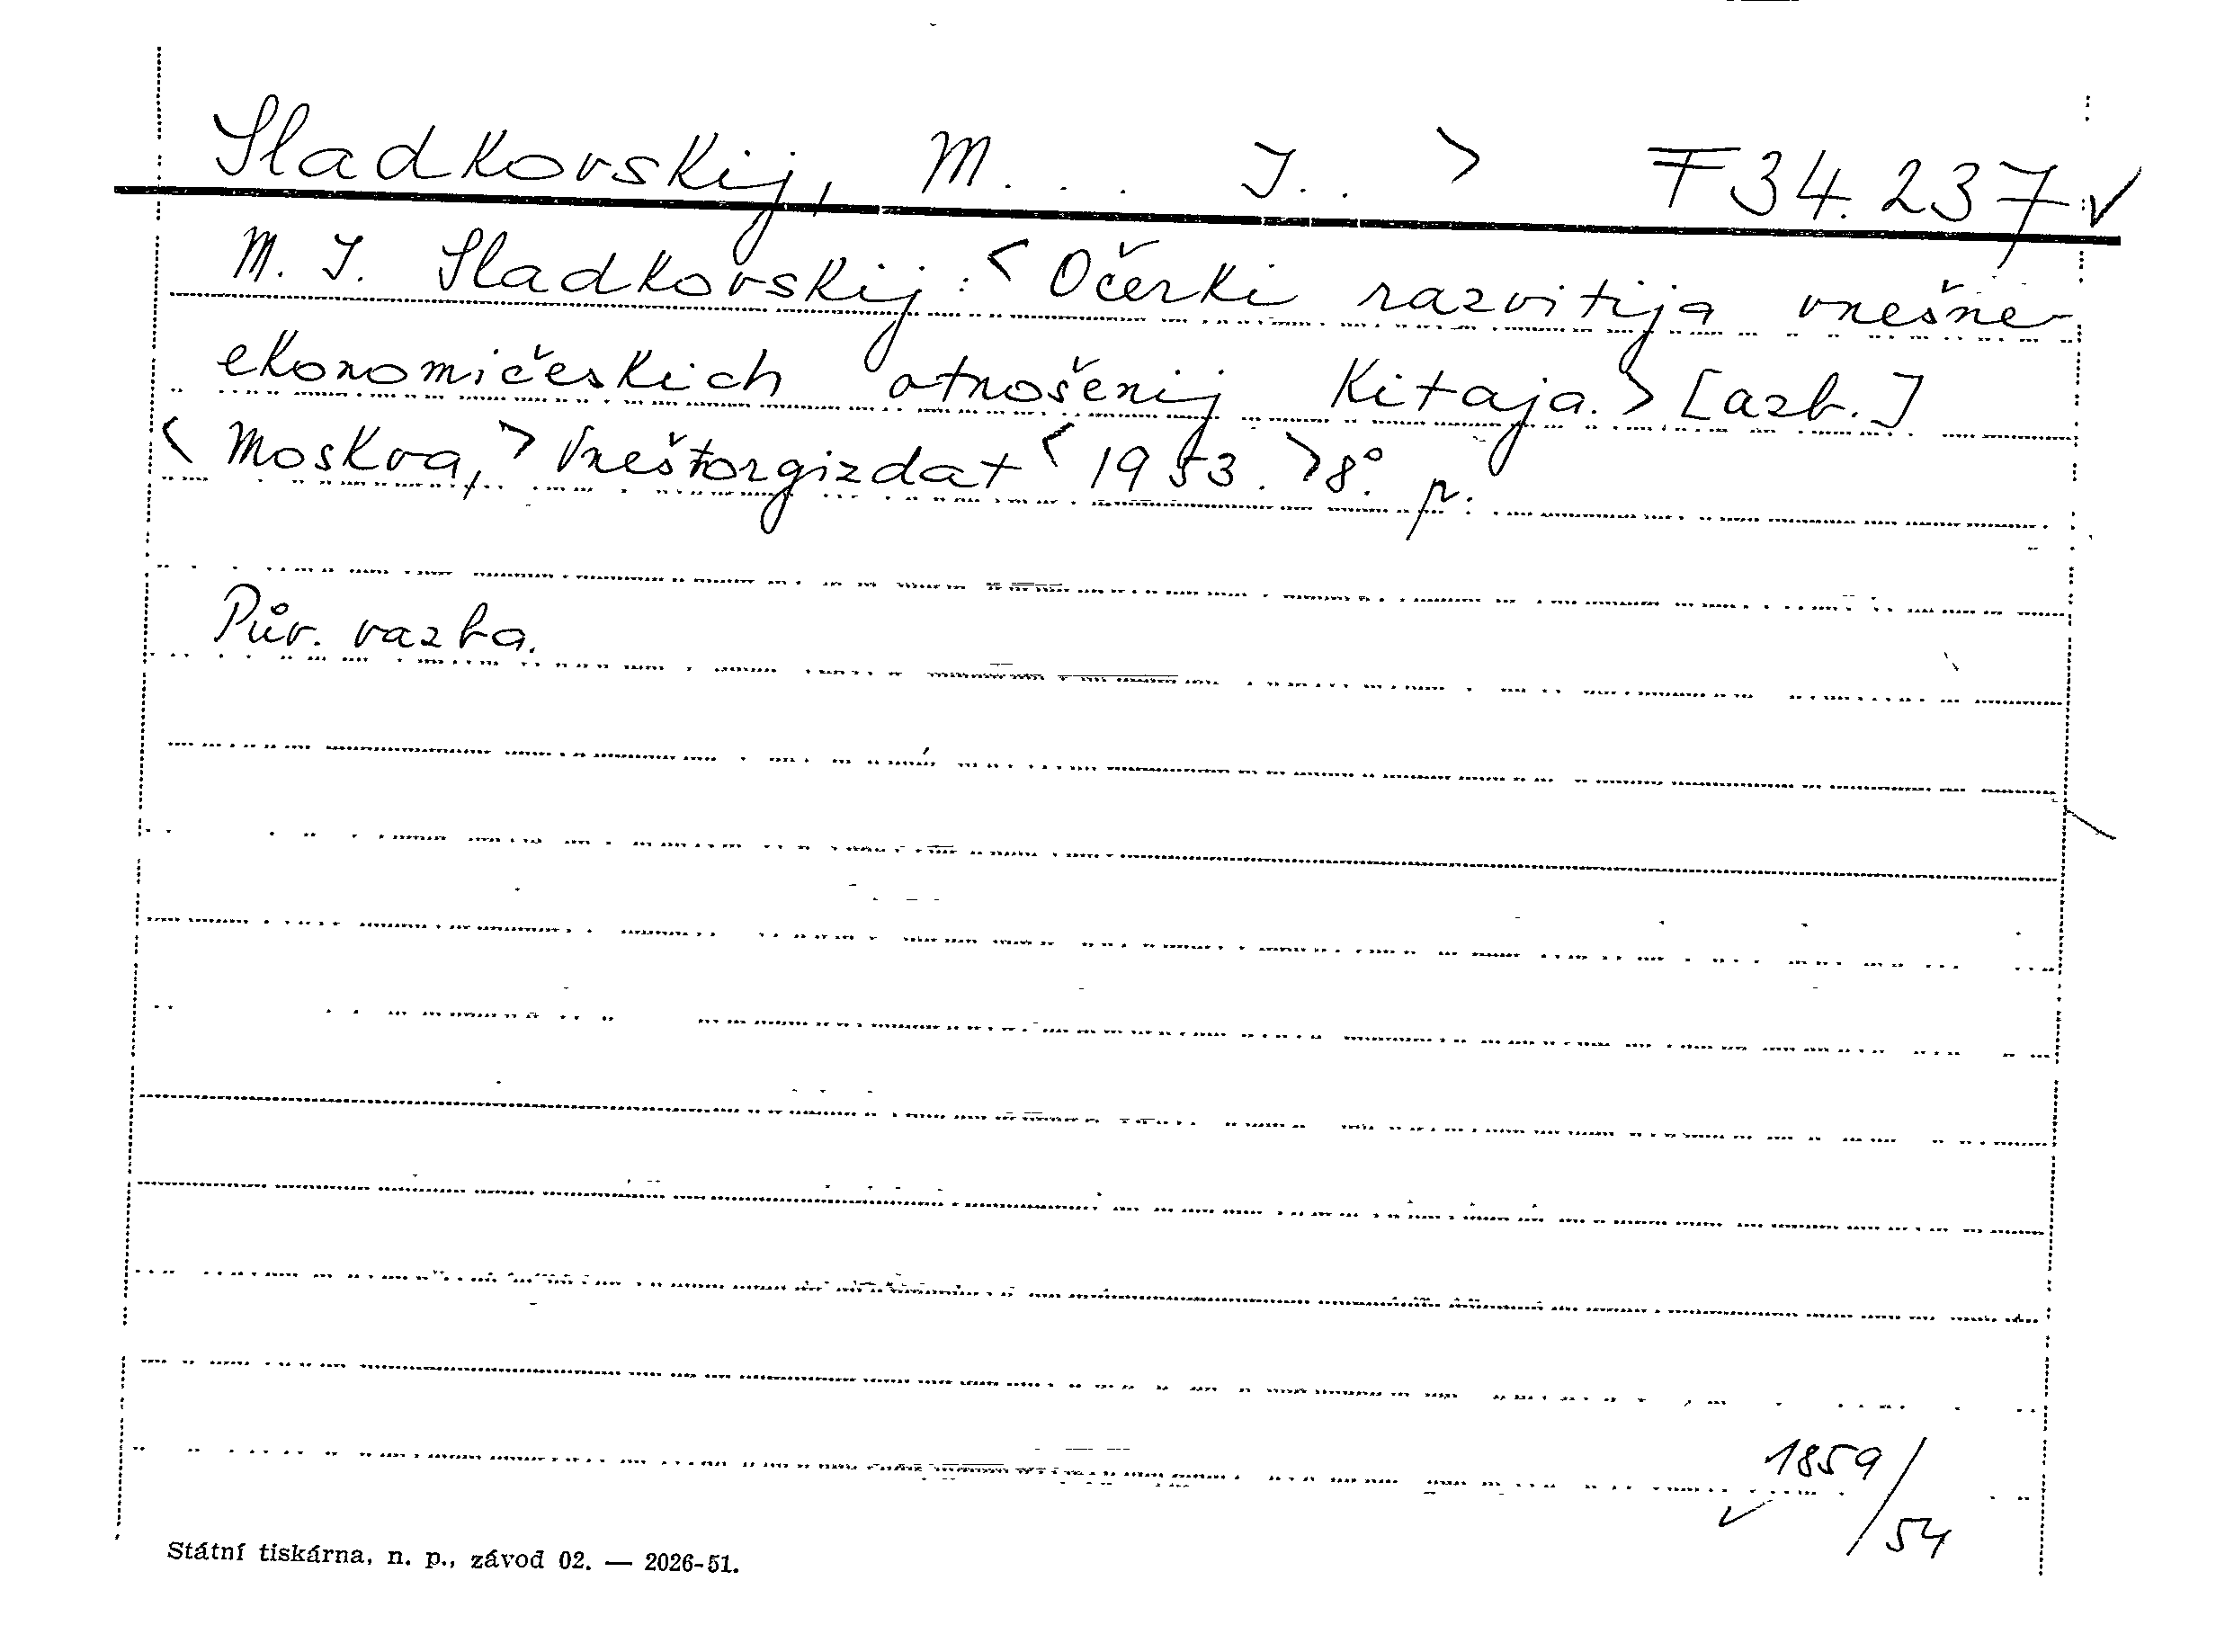 Sladkovskij, M... I.. > F 34.237 ✓
M. I. Sladkovskij: < Očerki razvitija vnešne-
ekonomičeskich otnošenij Kitaja. > [azb.]
< Moskva, > Vneštorgizdat < 1953. > 8°. p.
Pův. vazba.
✓ 1859/54
Státní tiskárna, n. p., závod 02. — 2026-51.